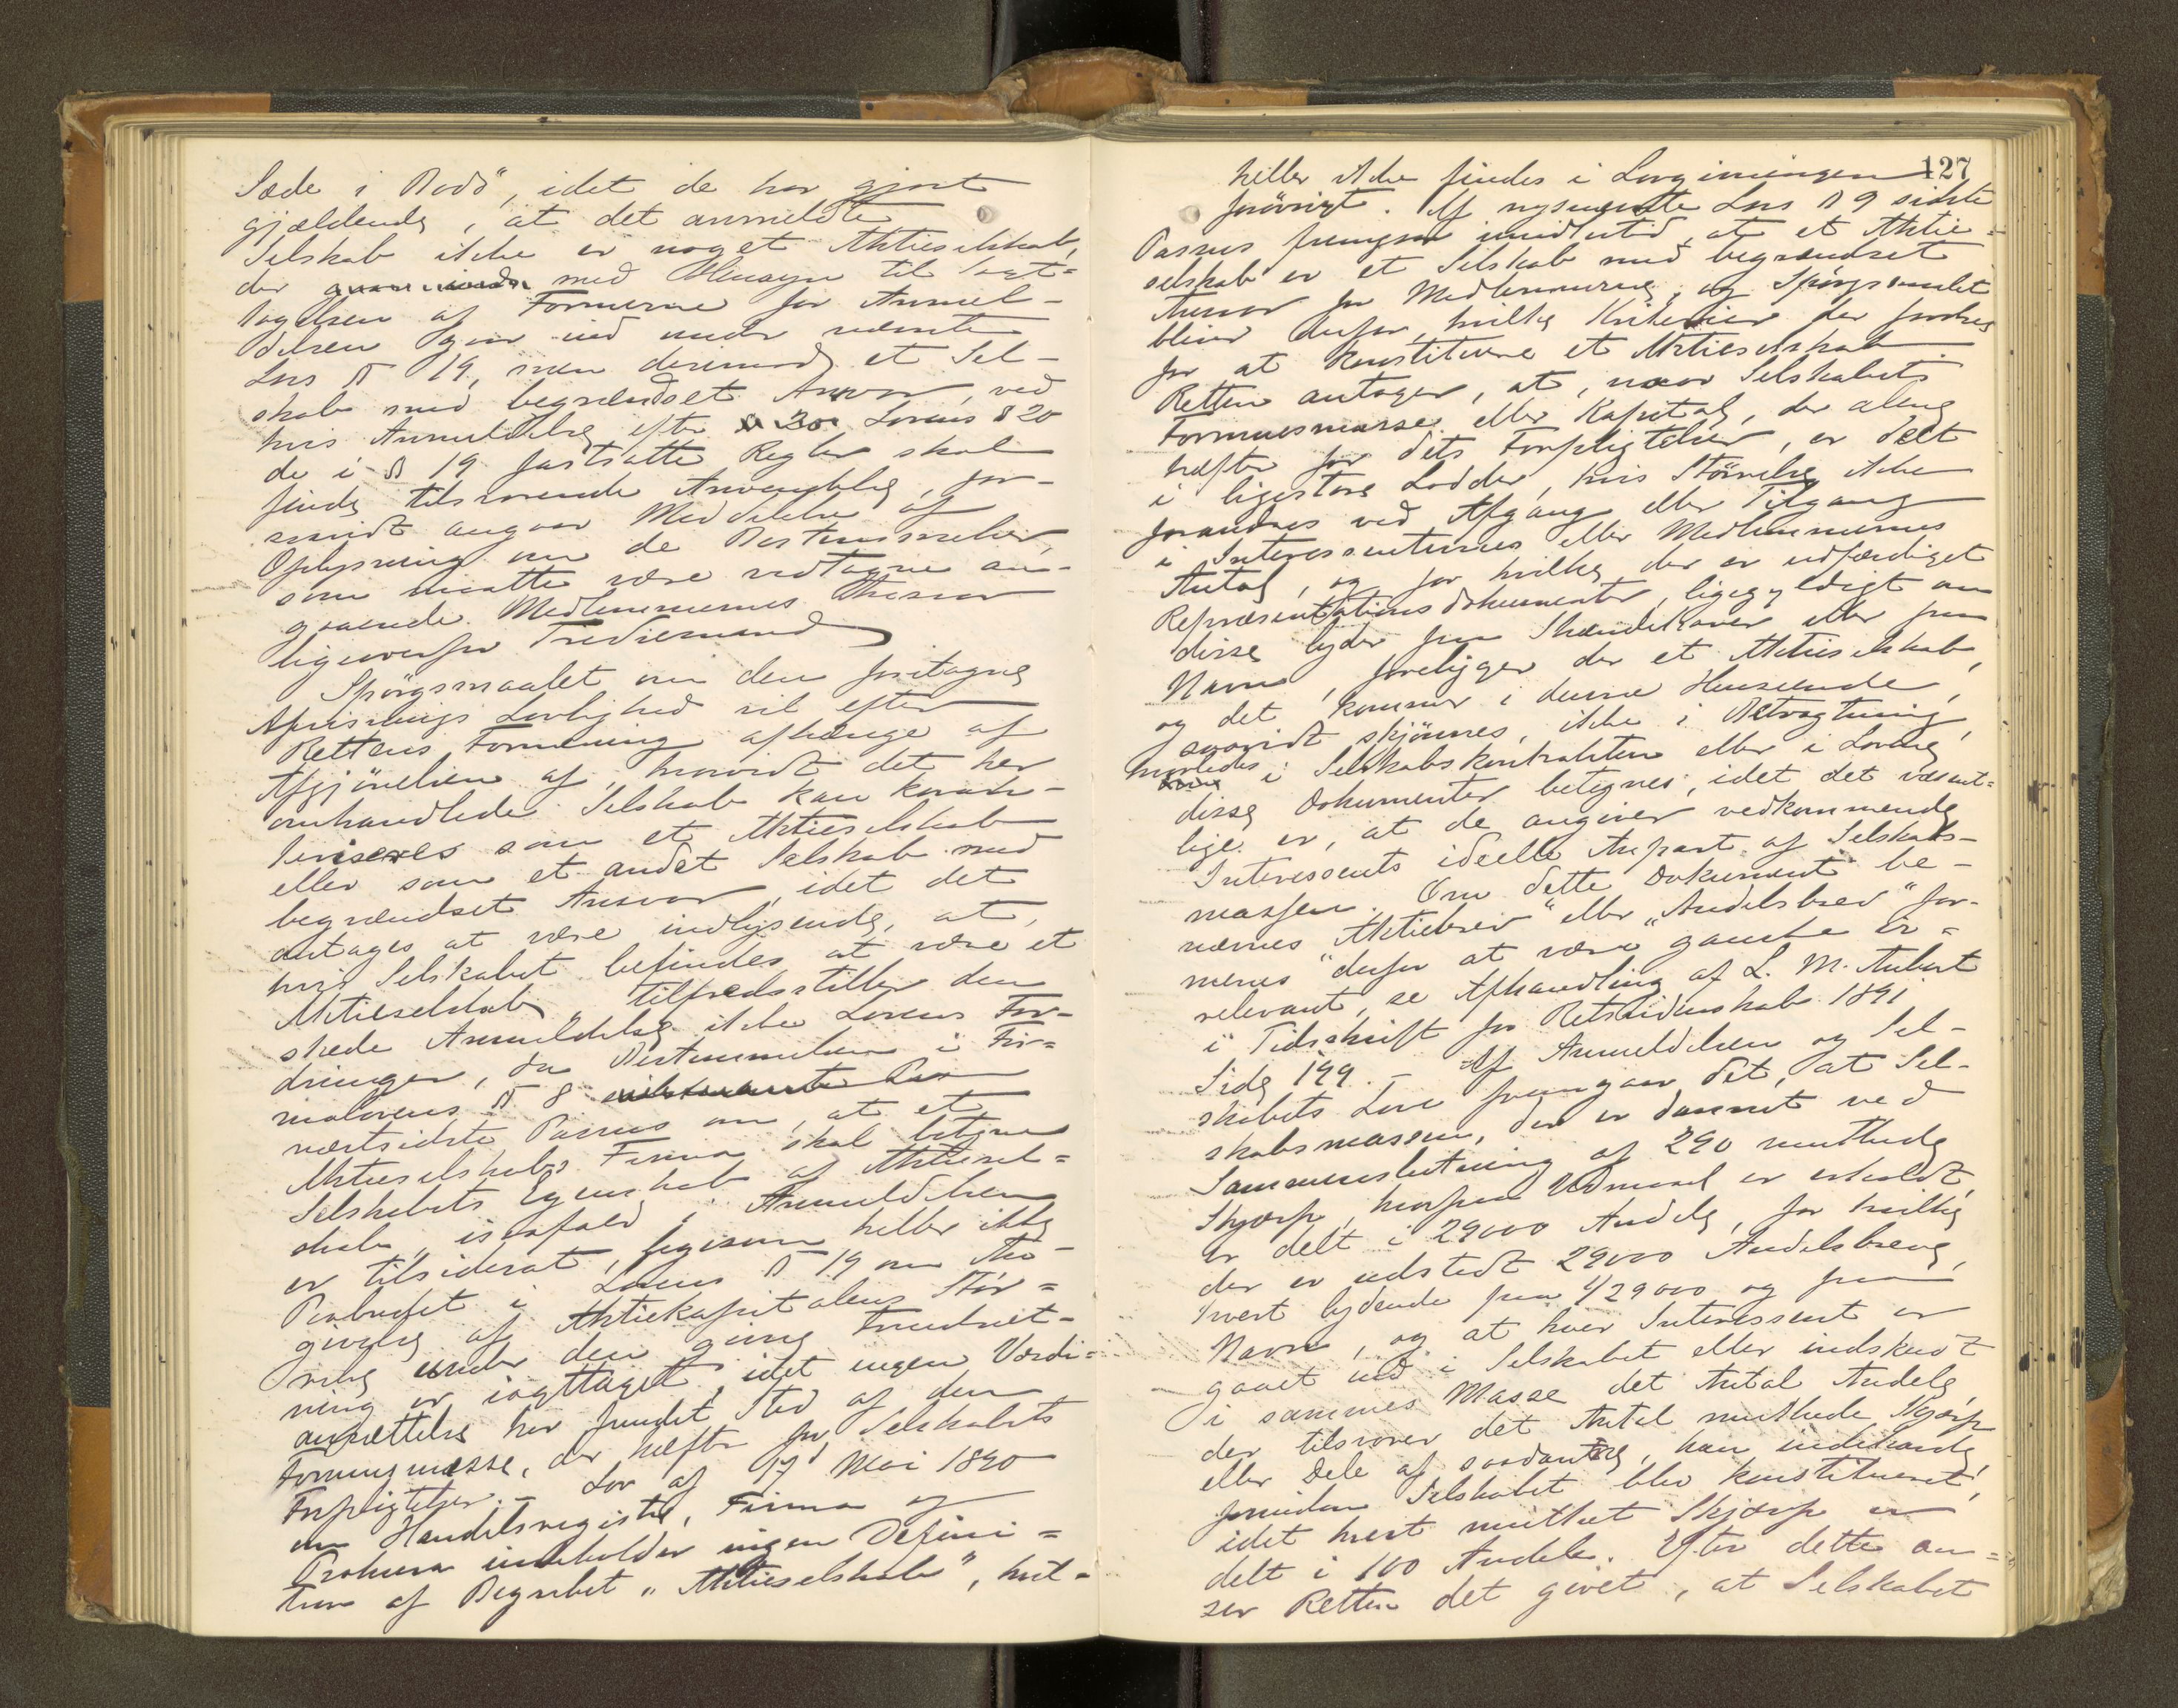 Sæde i Bodö", idet de har gjort
gjældende, at det anmeldte
Selskab ikke er noget Aktieselskab,
der med Hensyn til Iagt-
tagelsen af Formerne for Anmel-
delsen gaar ind under nævnte
Lovs § 19, men derimod et Sel-
skab med begrændset Ansvar, ved
hvis Anmeldelse efter Lovens § 20
de i § 19 fastsatte Regler skal
finde tilsvarende Anvendelse, for-
saavidt angaar Meddelelse af
Oplysning om de Bestemmelser,
som maatte være vedtagne an-
gaaende Medlemmernes Ansvar
ligeoverfor Trediemand
Spörgsmaalet om den foretagne
Afvisnings Lovlighed vil efter
Rettens Formening afhænge af
Afgjörelsen af, hvorvidt det her
omhandlede Selskab kan karak-
teriseres som et Aktieselskab
eller som et andet Selskab med
begrændset Ansvar, idet det
antages at være indlysende, at,
hvis Selskabet befindes at være et
Aktieselskab, tilfredsstiller den
skede Anmeldelse ikke Lovens For-
dringer, da Bestemmelsen i Fir-
malovens § 8
næstsidste Passus om, at et
Aktieselskabs Firma skal betegne
Selskabets Egenskab af Aktiesel-
skab, isaafald i Anmeldelsen
er tilsidesat, ligesom heller ikke
Paabudet i Lovens § 19 om An-
givelse af Aktiekapitalens Stör-
relse under den givne Forudsæt-
ning er iagttaget, idet ingen Værdi-
ansættelse har fundet Sted af den
Formuesmasse, der hæfter for Selskabets
Forpligtelser. - Lov af 17 Mai 1890
om Handelsregistre, Firma og
Prokura indeholder ingen Defini-
tion af Begrebet "Aktieselskab", hvil-
127
heller ikke findes i Lovgivningen
forövrigt. Af nysnævnte Lovs § 9 sidste
Passus fremgaar imidlertid, at et Aktie-
selskab er et Selskab med begrændset
Ansvar for Medlemmerne, og Spörgsmaalet
bliver derfor, hvilke Kriterier der fordres
for at konstituere et Aktieselskab
Retten antager, at, naar Selskabets
Formuesmasse eller Kapital, der alene
hæfter for dets Forpligtelser, er delt
i ligestore Lodder, hvis Störrelse ikke
forandres ved Afgang eller Tilgang
i Interessenternes eller Medlemmernes
Antal, og for hvilke der er udfærdiget
Repræsentationsdokumenter, ligegyldigt om
disse lyder paa Ihændehaver eller paa
Navn, foreligger der et Aktieselskab,
og det kommer i denne Henseende,
saavidt skjönnes, ikke i Betragtning,
hvorledes i Selskabskontrakten eller i Lovene
disse Dokumenter betegnes, idet det væsent-
lige er, at de angiver vedkommende
Interessents ideelle Anpart af Selskabs-
massen. Om dette Dokument be-
nævnes "Aktiebrev" eller "Andelsbrev" for-
menes derfor at være ganske ir-
relevant, se Afhandling af L. M. Aubert
i Tidsskrift for Retsvidenskab 1891
Side 199. - Af Anmeldelsen og Sel-
skabets Love fremgaar det, at Sel-
skabsmassen, der er dannet ved
Sammenslutning af 290 muthede
Skjærp, hvorpaa Udmaal er erholdt,
er delt i 29000 Andele, for hvilke
der er udstedt 29000 Andelsbreve,
hvert lydende paa 1/29000 og paa
Navn, og at hver Interessent er
gaaet ind i Selskabet eller indskudt
i sammes Masse det Antal Andele,
der tilsvarer det Antal muthede Skjærp
eller Dele af saadanne, han indehavde,
forinden Selskabet blev konstitueret,
idet hvert muthet Skjærp er
delt i 100 Andele. Efter dette an-
ser Retten det givet, at Selskabet